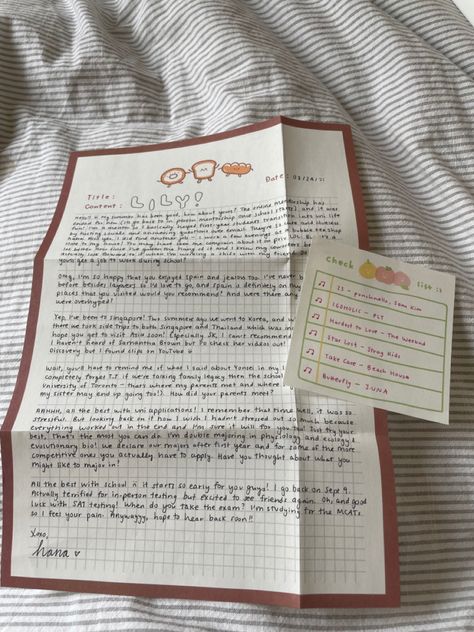 Date: 08/24/21
Title:
Content: LILY!
Hello!! My summer has been good, how about yours? The online mentorship has
ended for now (I'll go back to in person mentorship once school starts) and it was
fun! I'm a mentor so I basically helped first-year students transition into uni life
by hosting and answering questions over email. They're so cute and
Have you, I also another job - I work a few evenings at a bubble tea shop
close to my house! You may have seen me complain about it on priv LOL. But it's
you'll get a job to work during school?
OMG, I'm so happy that you enjoyed Spain and jealous too. I've never b
before besides layovers so I'd love to go, and Spain is definitely on my
places that you visited would you recommend? And were there any
were overhyped?
Yep, I've been to Singapore! Two summers ago we went to Korea, and w
there we took side trips to both Singapore and Thailand which was in
hope you get to visit Asia soon! Especially SK, I can't recommend
I haven't heard of Samantha Brown but I'll check her videos out!
Discovery but I found clips on YouTube
Wait, you'll have to remind me of what I said about Yonsei in my l
completely forgot T.T If we're talking family legacy then the school
University of Toronto - that's where my parents met and where
my sister may end up going too!). How did your parents meet?
AHHHH, all the best with uni applications! I remember that time well, it was so
stressful. But looking back on it now I wish I hadn't stressed out so much because
everything worked out in the end and I'm sure it will for you too! Just try your
best, that's the most you can do. I'm double majoring in physiology and ecology &
evolutionary bio! We declare our majors after first year and for some of the more
competitive ones you actually have to apply. Have you thought about what you
might like to major in?
All the best with school it starts so early for you guys! I go back on Sept 9.
Actually terrified for in-person testing but excited to see friends again. Oh, and good
luck with SAT testing! When do you take the exam? I'm studying for the MCATs
so I feel your pain. Anywayyy, hope to hear back soon!!
Xoxo,
hana
check list
23 - punchnello, Sam Kim
IGOHOLIC - PLT
Hardest to Love - The Weeknd
Star Lost - Stray Kids
Take Care - Beach House
Butterfly - LOONA